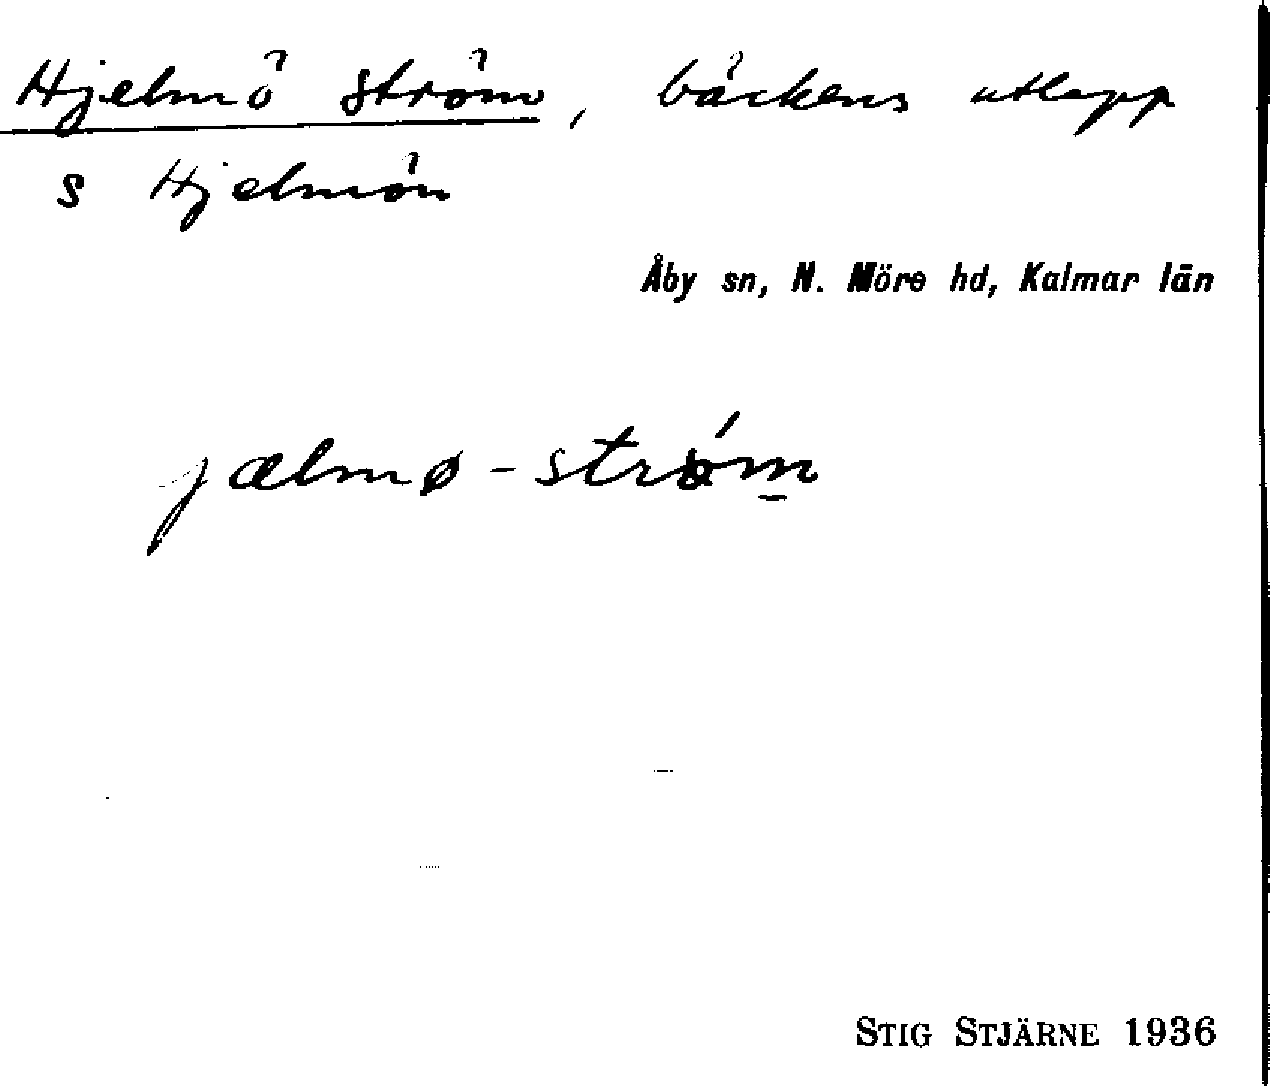 Hjelmö ström, bäckens utlopp
s Hjelmön
Åby sn, N. Möre hd, Kalmar län
jælmø-strǿm
STIG STJÄRNE 1936